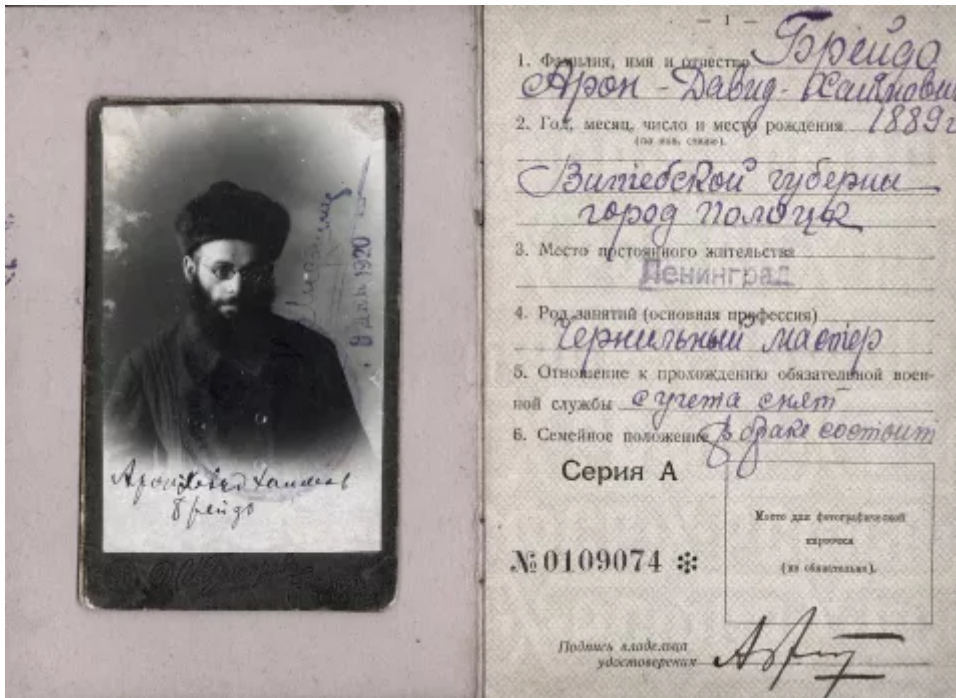 Арон Давид Хаимов
Брейдо
1920
— 1 —
1. Фамилия, имя и отчество Брейдо
Арон-Давид-Хаимович
2. Год, месяц, число и место рождения 1889 г
(по нов. стилю).
Витебской губерны
город Полоцк
3. Место постоянного жительства
Ленинград
4. Род занятий (основная профессия)
Чернильный мастер
5. Отношение к прохождению обязательной воен-
ной службы с учета снят
6. Семейное положение в браке состоит
Серия А
Место для фотографической
карточки
(не обязательно).
№ 0109074
Подпись владельца
удостоверения